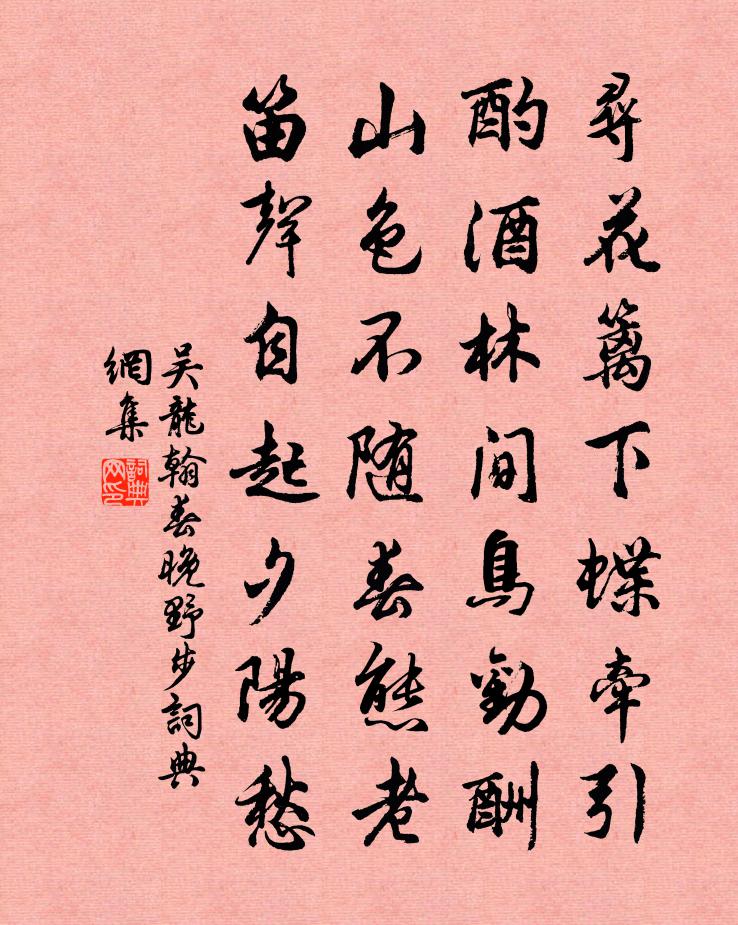 尋花籬下蝶牽引
酌酒林間鳥勸酬
山色不随春態老
笛聲自起夕陽愁
吴龍翰春晚野步詞典
網集
詞典
网印